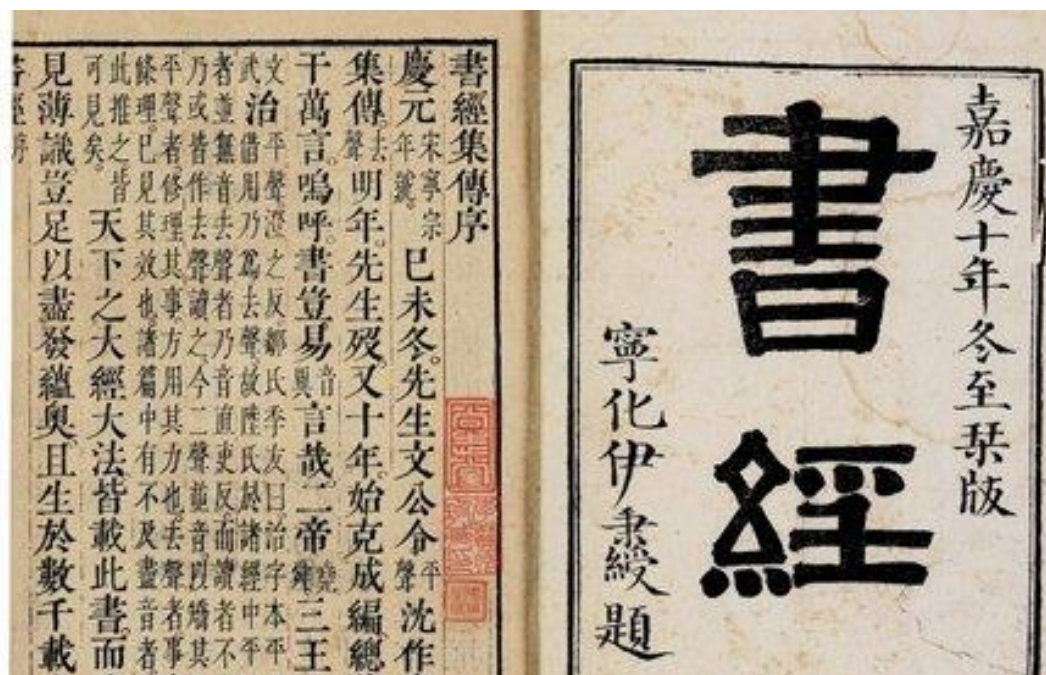 嘉慶十年冬至栞版
書經
寧化伊秉綬題
書經集傳序
慶元宋寧宗年號。巳未冬。先生文公令平聲沈作
集傳。去聲明年。先生歿。又十年。始克成編。總
干萬言。嗚呼。書豈易音異言哉。二帝堯舜三王
文武治平聲澄之反鄒氏季友曰治字本平
借用乃爲去聲故陸氏於諸經中平
者並無音去聲者乃音直吏反而讀者不
乃或皆作去聲讀之今二聲並音以矯其
平聲者修理其事方用其力也去聲者事
條理已見其效也諸篇中有不及盡音者
此推之皆可見矣。天下之大經大法皆載此書。而
見薄識。豈足以盡發蘊奧。且生於數千載